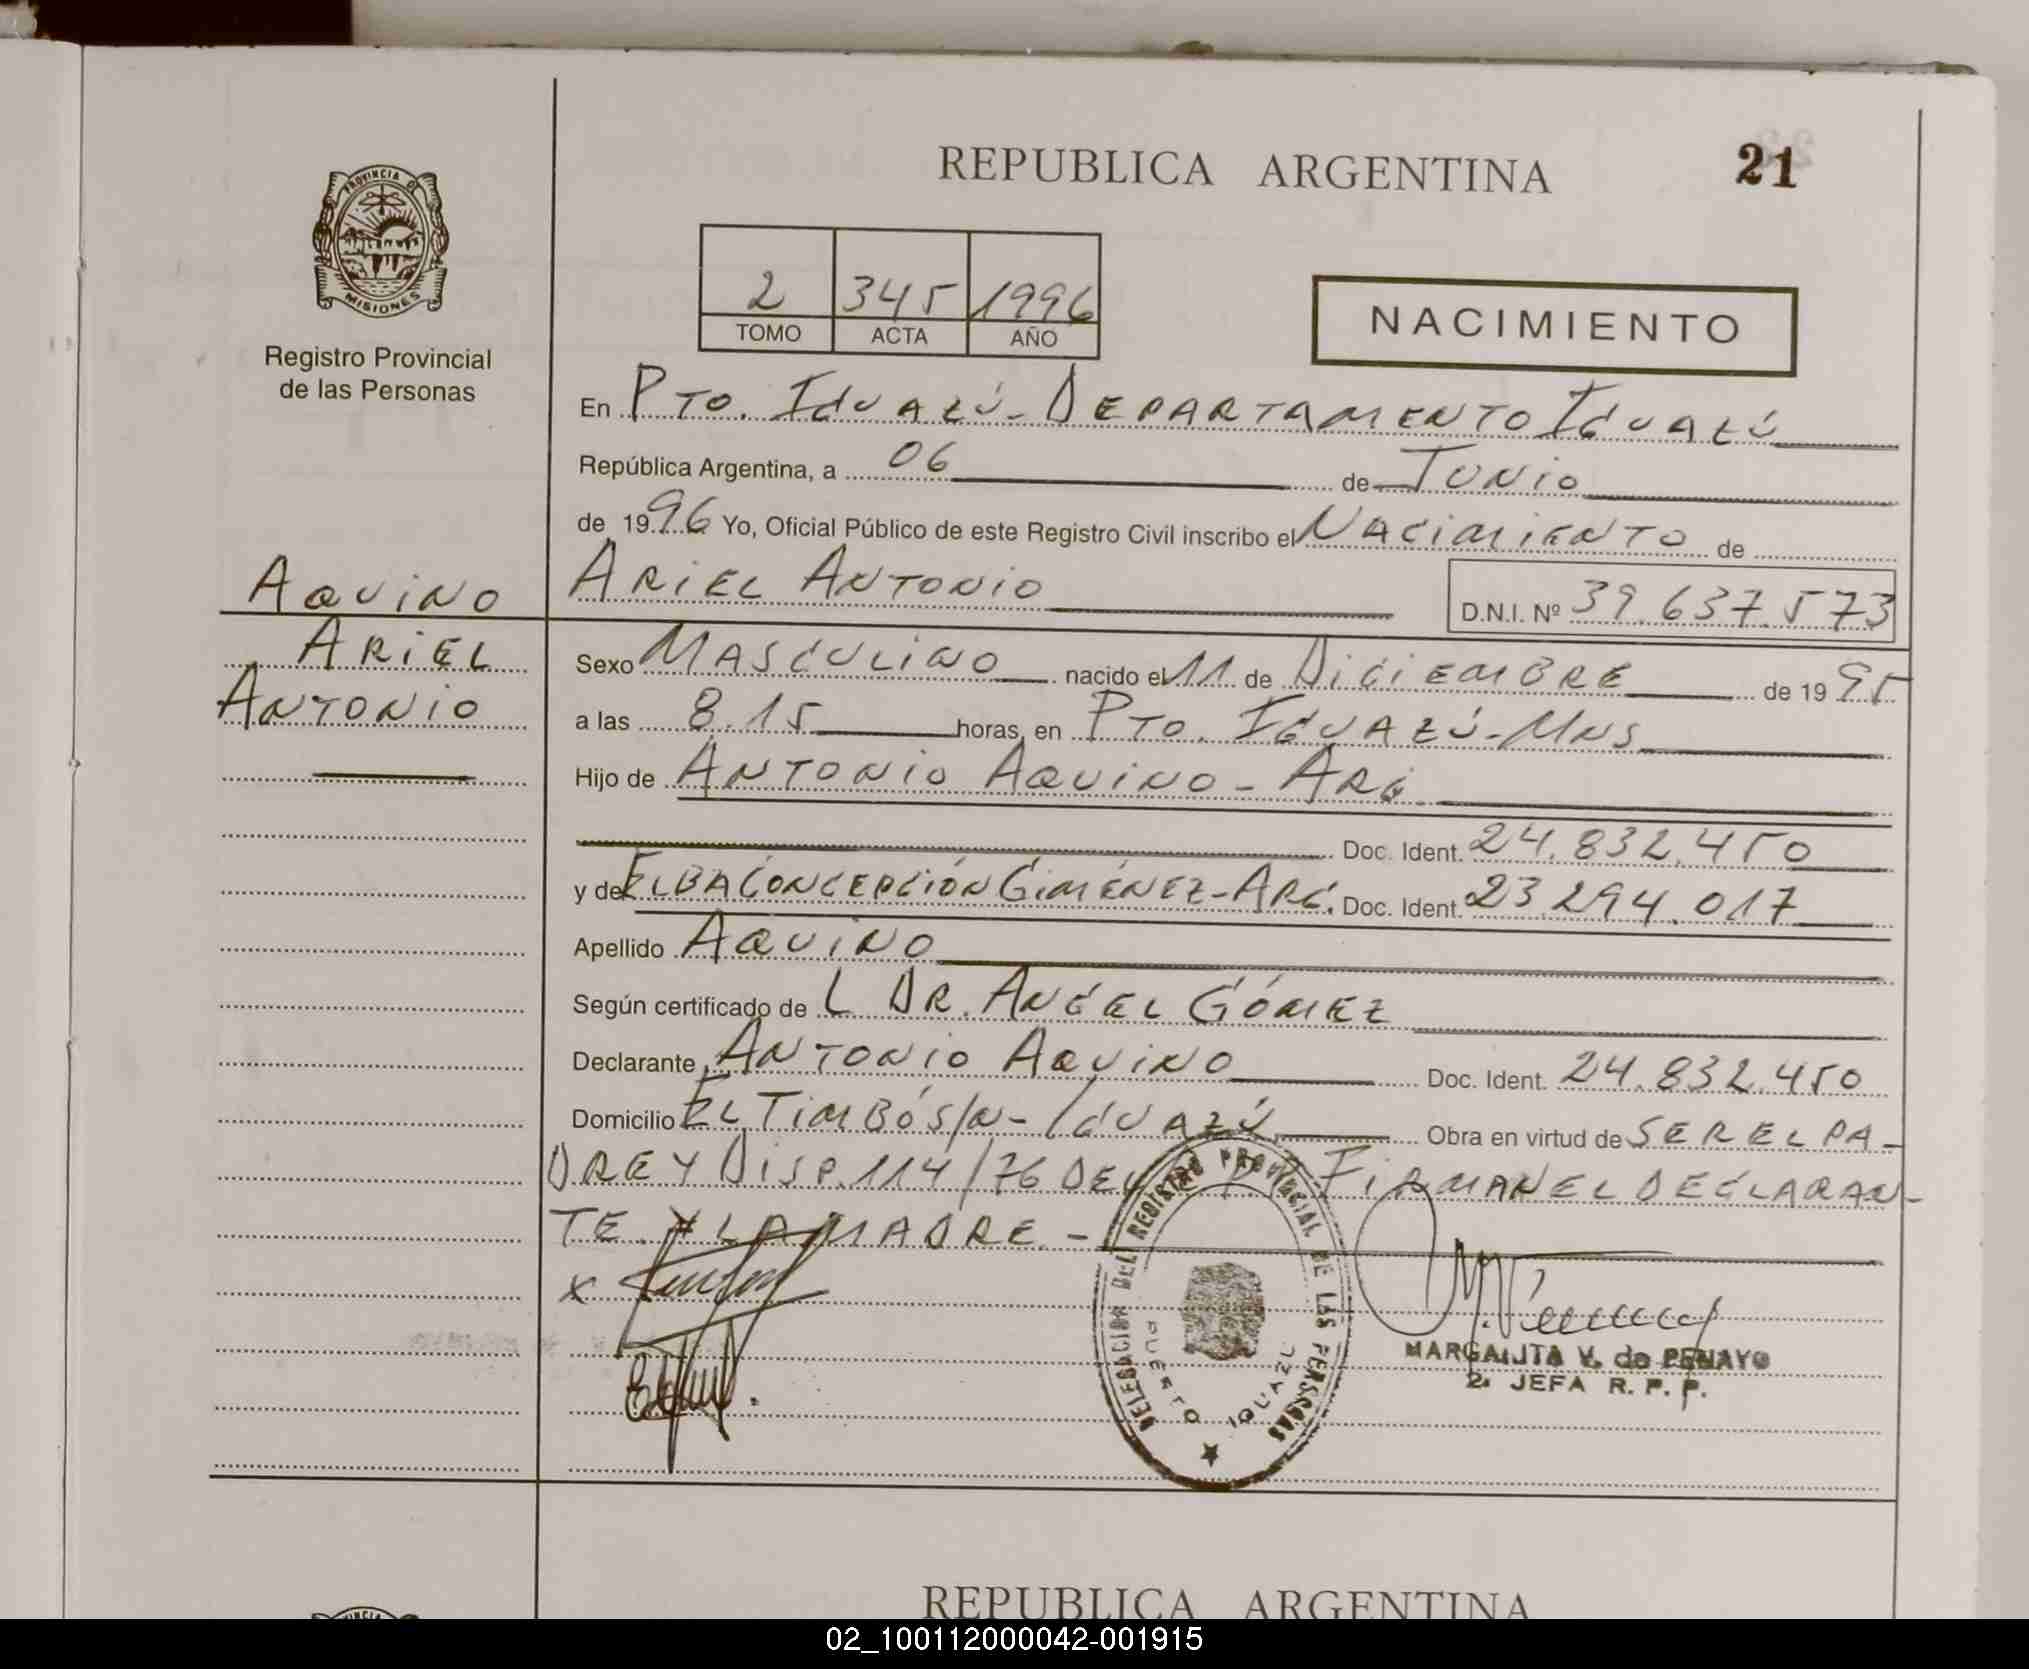 REPUBLICA ARGENTINA
21
PROVINCIA DE
MISIONES
Registro Provincial
de las Personas
2 345 1996
TOMO ACTA AÑO
NACIMIENTO
En PTO. IGUAZÚ - DEPARTAMENTO IGUAZÚ
República Argentina, a 06 de JUNIO
de 1996 Yo, Oficial Público de este Registro Civil inscribo el NACIMIENTO de
AQUINO ARIEL ANTONIO D.N.I. Nº 39.637.573
ARIEL Sexo MASCULINO nacido el 11 de DICIEMBRE de 1995
ANTONIO a las 8.15 horas, en PTO. IGUAZÚ - MNS
Hijo de ANTONIO AQUINO - ARG.
Doc. Ident. 24.832.450
y de ELBA CONCEPCIÓN GIMÉNEZ - ARG. Doc. Ident. 23.294.017
Apellido AQUINO
Según certificado de L DR. ANGEL GÓMEZ
Declarante ANTONIO AQUINO Doc. Ident. 24.832.450
Domicilio EL TIMBÓ S/N - IGUAZÚ Obra en virtud de SER EL PA-
DRE Y DISP. 114/76 FIRMAN EL DECLARAN-
TE Y LA MADRE -
x
DELEGACION DEL REGISTRO PROVINCIAL DE LAS PERSONAS
PUERTO IGUAZU
MARGARITA V. de PENAYO
2ª JEFA R. P. P.
REPUBLICA ARGENTINA
02_100112000042-001915